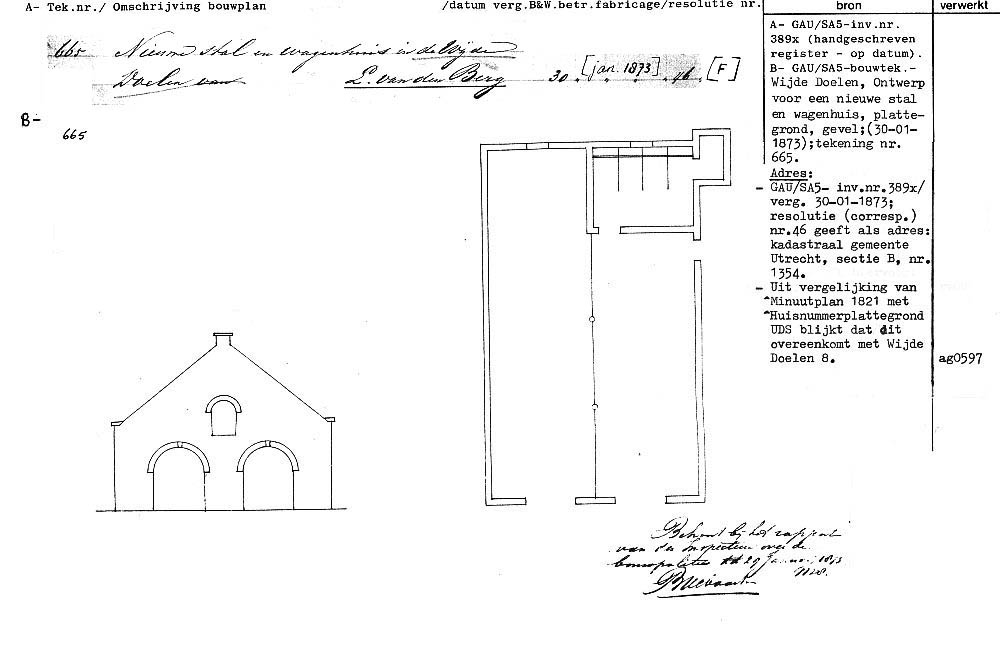 A- Tek.nr./ Omschrijving bouwplan /datum verg.B&W.betr.fabricage/resolutie nr. bron verwerkt
665 Nieuwe stal en wagenhuis in de Wijde
Doelen van L. van den Berg 30 [jan. 1873] 46. [F]
B-
665
A- GAU/SA5-inv.nr.
389x (handgeschreven
register - op datum).
B- GAU/SA5-bouwtek.-
Wijde Doelen, Ontwerp
voor een nieuwe stal
en wagenhuis, platte-
grond, gevel;(30-01-
1873);tekening nr.
665.
Adres:
- GAU/SA5- inv.nr.389x/
verg. 30-01-1873;
resolutie (corresp.)
nr.46 geeft als adres:
kadastraal gemeente
Utrecht, sectie B, nr.
1354.
- Uit vergelijking van
^Minuutplan 1821 met
^Huisnummerplattegrond
UDS blijkt dat dit
overeenkomt met Wijde
Doelen 8. ag0597
Behoort bij het rapport
van den Inspecteur over de
bouwpolitie dd 29 Januarij 1873